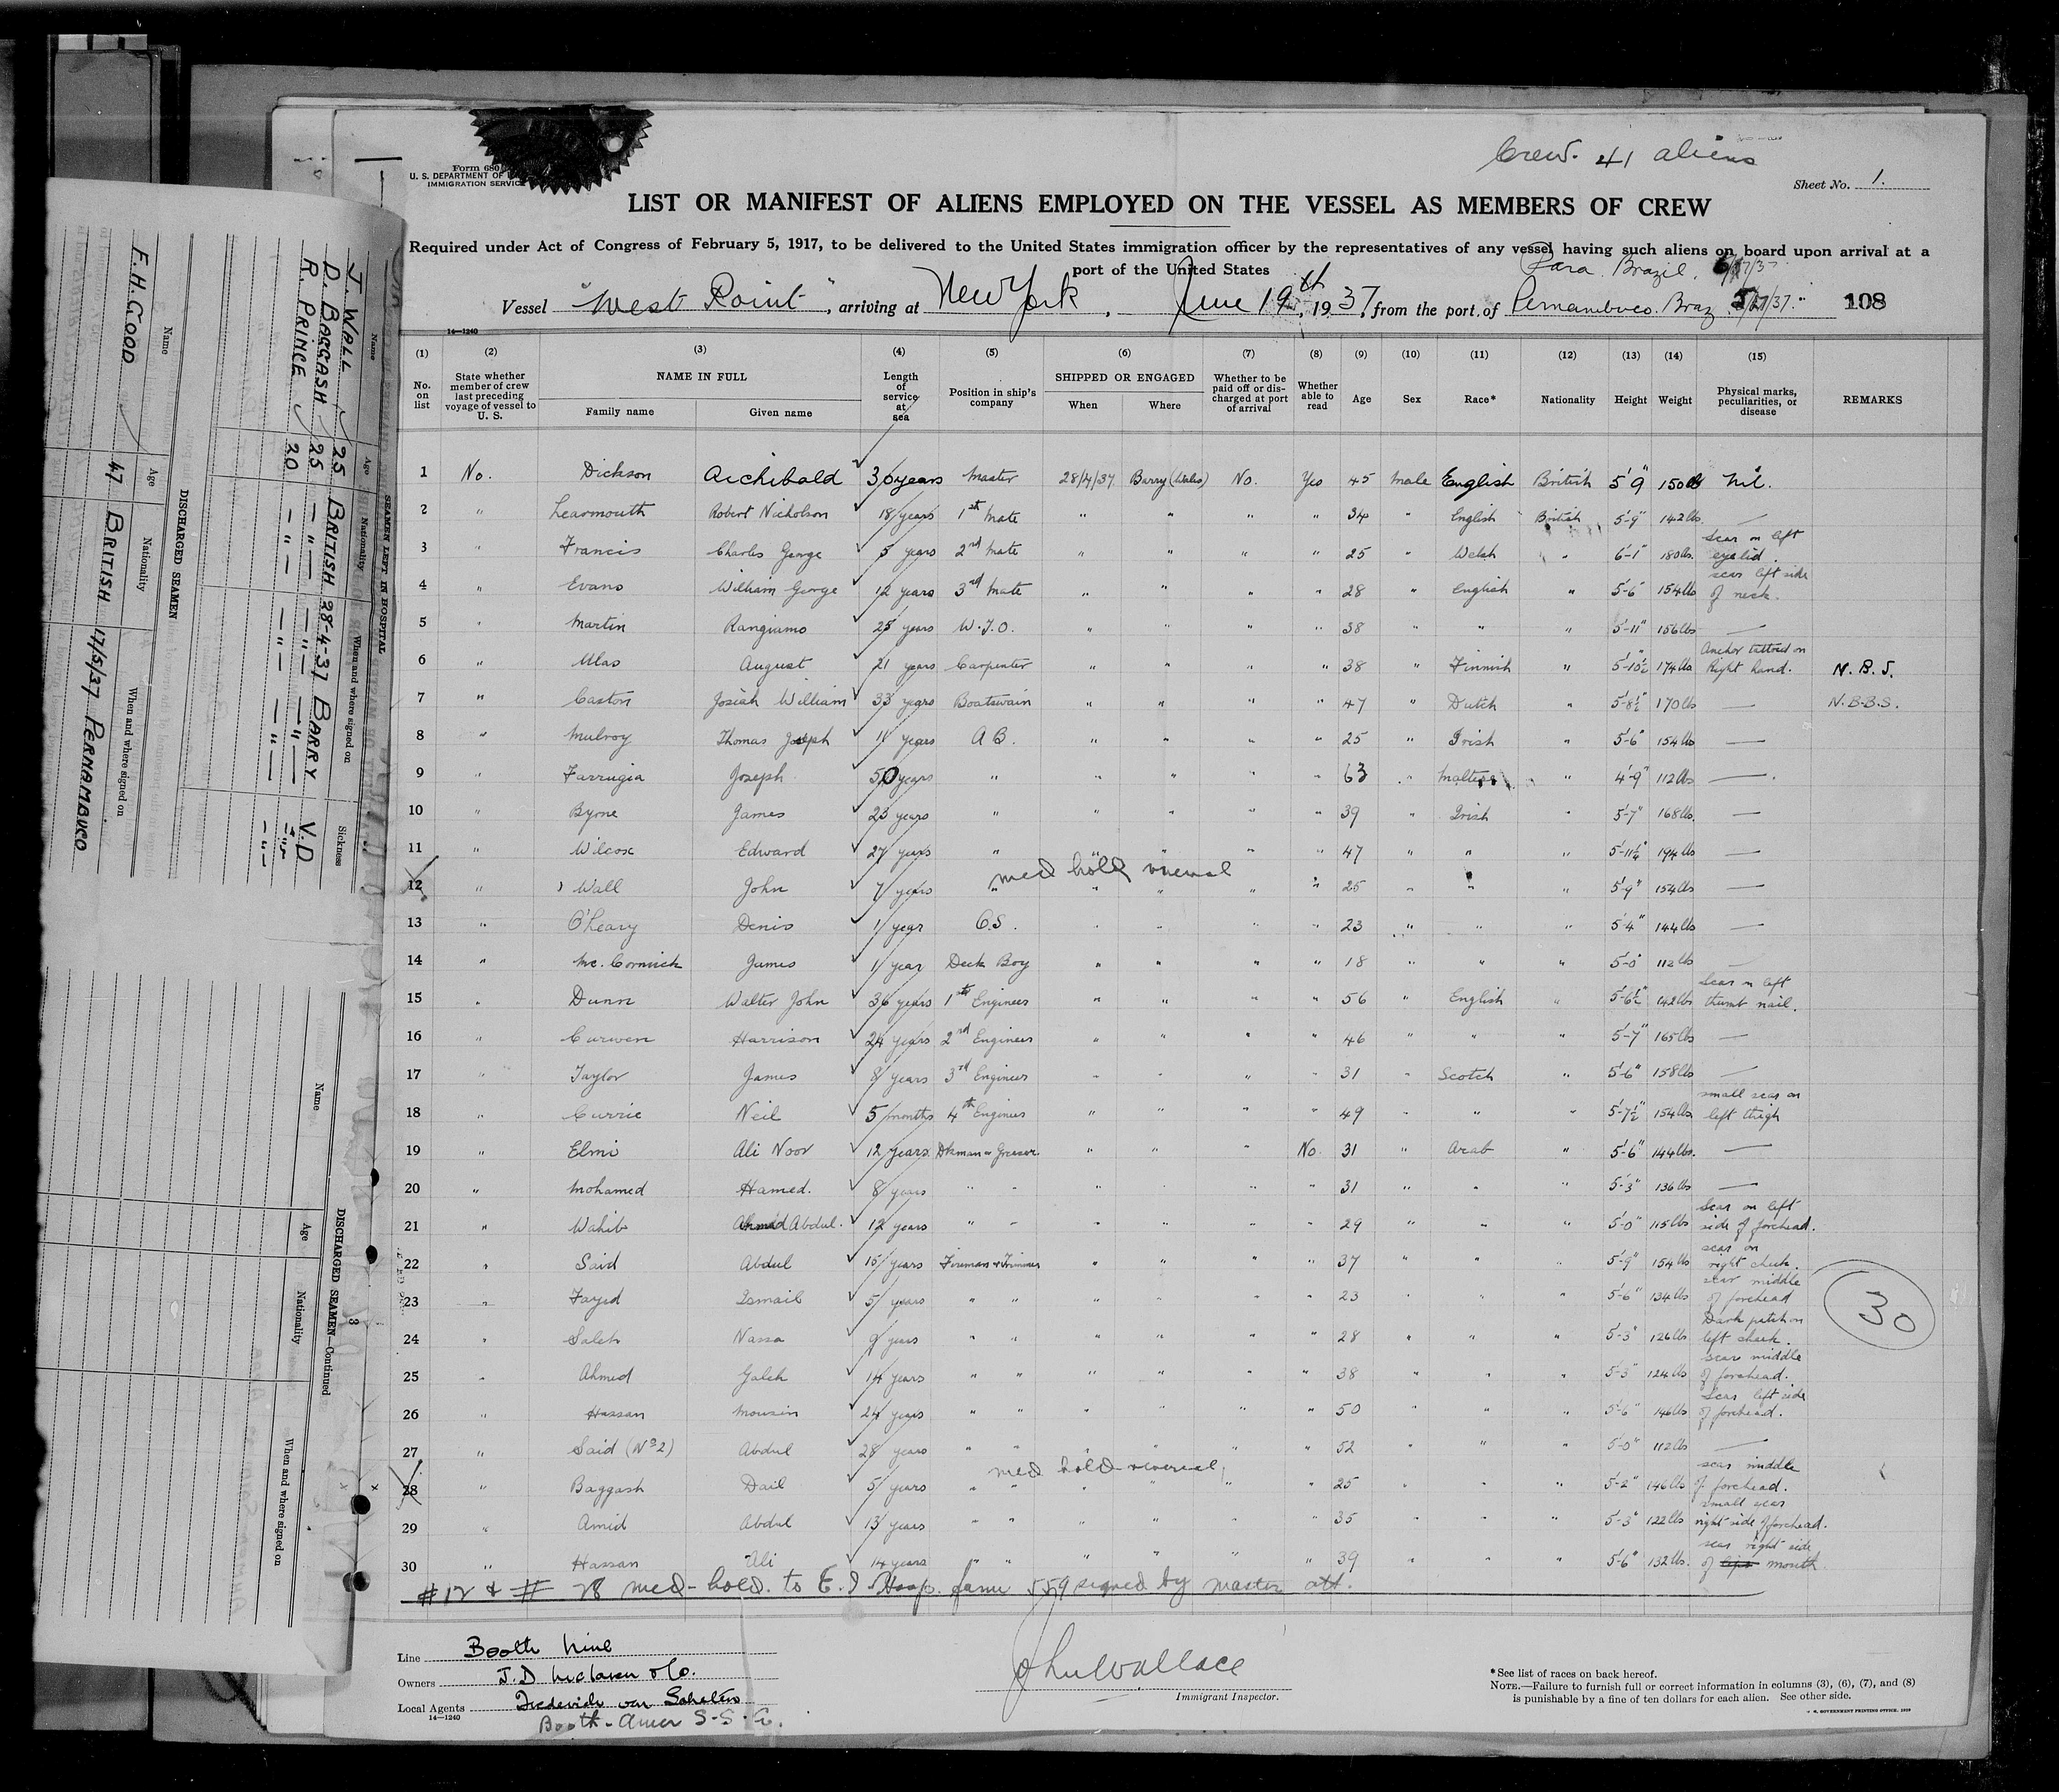 Crew. 41 aliens
Form 680
U. S. DEPARTMENT OF
IMMIGRATION SERVICE
Sheet No. 1.
LIST OR MANIFEST OF ALIENS EMPLOYED ON THE VESSEL AS MEMBERS OF CREW
Required under Act of Congress of February 5, 1917, to be delivered to the United States immigration officer by the representatives of any vessel having such aliens on board upon arrival at a
port of the United States
Para. Brazil.
Vessel "West Point", arriving at New York, June 19th, 1937, from the port of Pernambuco. Braz 5/27/37. 108
14—1240
(1) (2) (3) (4) (5) (6) (7) (8) (9) (10) (11) (12) (13) (14) (15)
No. on list
State whether member of crew last preceding voyage of vessel to U. S.
NAME IN FULL
Family name Given name
Length of service at sea
Position in ship's company
SHIPPED OR ENGAGED
When Where
Whether to be paid off or discharged at port of arrival
Whether able to read
Age Sex Race* Nationality Height Weight
Physical marks, peculiarities, or disease
REMARKS
1 No. Dickson Archibald 30 years Master 28/4/37 Barry (Wales) No. Yes 45 Male English British 5'9" 150 lb Nil.
2 " Learmouth Robert Nicholson 18 years 1st Mate " " " " 34 " English British 5'-9" 142 lbs. —
3 " Francis Charles George 5 years 2nd Mate " " " " 25 " Welsh " 6'-1" 180 lbs. Scar on left eyelid.
4 " Evans William George 12 years 3rd Mate " " " " 28 " English " 5'-6" 154 lbs scar left side of neck.
5 " Martin Rangiamo 25 years W.T.O. " " " " 38 " " " 5'-11" 156 lbs —
6 " Ulas August 21 years Carpenter " " " " 38 " Finnish " 5'-10½" 174 lbs Anchor tattooed on Right hand. N.B.S.
7 " Caston Josiah William 33 years Boatswain " " " " 47 " Dutch " 5'-8½" 170 lbs — N.B.B.S.
8 " Mulroy Thomas Joseph 11 years A B. " " " " 25 " Irish " 5'-6" 154 lbs —
9 " Farrugia Joseph 50 years " " " " " 63 " Maltese " 4'-9" 112 lbs —
10 " Byrne James 23 years " " " " " 39 " Irish " 5'-7" 168 lbs. —
11 " Wilcox Edward 27 years " " " " " 47 " " " 5'-11½" 194 lbs —
med hold venereal
12 " Wall John 7 years " " " " " 25 " " " 5'-9" 154 lbs —
13 " O'Leary Denis 1 year O.S. " " " " 23 " " " 5'-4" 144 lbs —
14 " Mc. Cormick James 1 year Deck Boy " " " " 18 " " " 5'-0" 112 lbs —
15 " Dunn Walter John 36 years 1st Engineer " " " " 56 " English " 5'-6½" 142 lbs Scar on left thumb nail.
16 " Curwen Harrison 24 years 2nd Engineer " " " " 46 " " " 5'-7" 165 lbs —
17 " Taylor James 8 years 3rd Engineer " " " " 31 " Scotch " 5'-6" 158 lbs —
18 " Currie Neil 5 months 4th Engineer " " " " 49 " " " 5'-7½" 154 lbs small scar on left thigh
19 " Elmi Ali Noor 12 years Dkman & Greaser " " " No 31 " Arab " 5'-6" 144 lbs. —
20 " Mohamed Hamed. 8 years " " " " " " 31 " " " 5'-3" 136 lbs —
21 " Wahib Ahmed Abdul. 12 years " " " " " " 29 " " " 5'-0" 115 lbs Scar on left side of forehead.
22 " Said Abdul 15 years Fireman & Trimmer " " " " 37 " " " 5'-9" 154 lbs scar on right cheek.
23 " Fayed Ismail 5 years " " " " " " 23 " " " 5'-6" 134 lbs scar middle of forehead
24 " Saleh Nassa 9 years " " " " " " 28 " " " 5'-3" 126 lbs Dark patch on left cheek.
25 " Ahmed Galeh 14 years " " " " " " 38 " " " 5'-3" 124 lbs scar middle of forehead.
26 " Hassan Mousin 24 years " " " " " " 50 " " " 5'-6" 146 lbs Scar left side of forehead.
27 " Said (No 2) Abdul 28 years " " " " " " 52 " " " 5'-0" 112 lbs —
med hold venereal
28 " Baggash Dail 5 years " " " " " " 25 " " " 5'-2" 146 lbs scar middle of forehead.
29 " Amid Abdul 13 years " " " " " " 35 " " " 5'-3" 122 lbs small scar right side of forehead.
30 " Hassan Ali 14 years " " " " " " 39 " " " 5'-6" 132 lbs. scar right side of lips mouth
30
#12 & # 28 med-hold. to E. I Hosp. form 559 signed by master att.
Line Booth Line
Owners J. D. McLaren & Co.
Local Agents
14—1240
Booth-Amer S-S. Co.
John Wallace
Immigrant Inspector.
*See list of races on back hereof.
NOTE.—Failure to furnish full or correct information in columns (3), (6), (7), and (8)
is punishable by a fine of ten dollars for each alien. See other side.
U. S. GOVERNMENT PRINTING OFFICE
SEAMEN LEFT IN HOSPITAL
Name Age Nationality When and where signed on Sickness
J. WALL 25 BRITISH 28-4-37 BARRY V.D
D. BAGGASH 25 —"— —"— —"— —"—
R. PRINCE 20 —"— —"— —"— —"—
DISCHARGED SEAMEN
Name Age Nationality When and where signed on
F.H. GOOD 47 BRITISH 17/5/37 PERNAMBUCO
3
DISCHARGED SEAMEN—Continued
Name Age Nationality When and where signed on